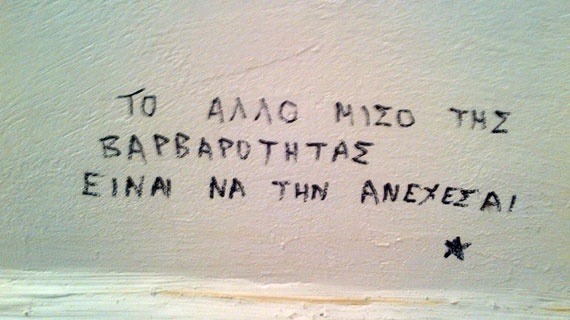 ΤΟ ΑΛΛΟ ΜΙΣΟ ΤΗΣ
ΒΑΡΒΑΡΟΤΗΤΑΣ
ΕΙΝΑΙ ΝΑ ΤΗΝ ΑΝΕΧΕΣΑΙ